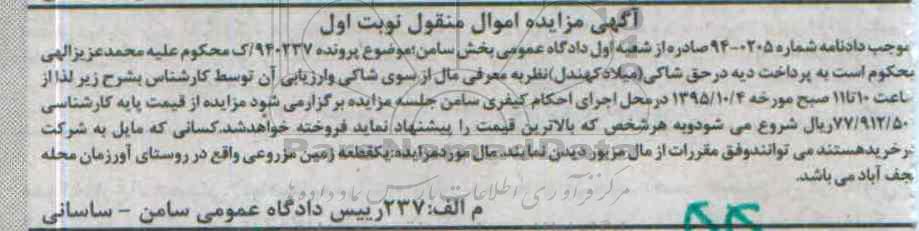 آگهی مزایده اموال منقول نوبت اول
موجب دادنامه شماره ۰۲۰۵-۹۴ صادره از شعبه اول دادگاه عمومی بخش سامن؛موضوع پرونده ۹۴۰۲۳۷/ک محکوم علیه محمدعزیزالهی
محکوم است به پرداخت دیه درحق شاکی(میلادکهندل)نظربه معرفی مال از سوی شاکی وارزیابی آن توسط کارشناس بشرح زیر لذا از
ساعت ۱۰تا۱۱ صبح مورخه ۱۳۹۵/۱۰/۴ درمحل اجرای احکام کیفری سامن جلسه مزایده برگزارمی شود مزایده از قیمت پایه کارشناسی
۷۷/۹۱۲/۵۰۰ریال شروع می شودوبه هرشخص که بالاترین قیمت را پیشنهاد نماید فروخته خواهدشد.کسانی که مایل به شرکت
درخریدهستند می توانندوفق مقررات از مال مزبور دیدن نمایند.مال موردمزایده:یکقطعه زمین مزروعی واقع در روستای آورزمان محله
نجف آباد می باشد.
م الف:۲۳۷رییس دادگاه عمومی سامن - ساسانی
مرکز فرآوری اطلاعات پارس نماد داده ها